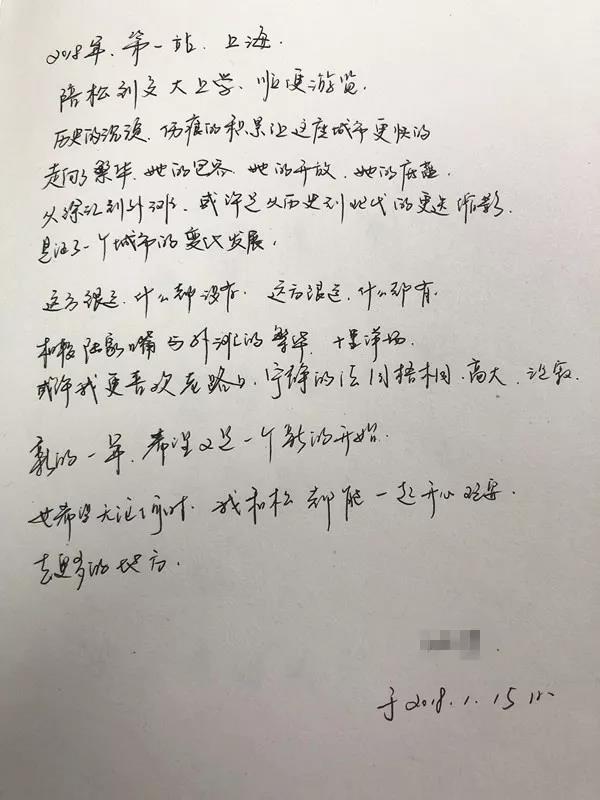 2018年，第一站，上海．
陪松到交大上学，顺便游览．
历史的沉颓，伤痕的积累让这座城市更快的
走向了繁华．她的包容，她的开放，她的底蕴．
从徐汇到外滩，或许是从历史到此代的更迭缩影，
见证了一个城市的变化发展．
这方很近，什么都没有．这方很远，什么都有．
相较陆家嘴与外滩的繁华，十里洋场，
或许我更喜欢老路上，宁静的法国梧桐，高大，
新的一年，希望又是一个新的开始．
也希望无论何时，我和松都能一起开心
去更多的地方．
于2018.1.15